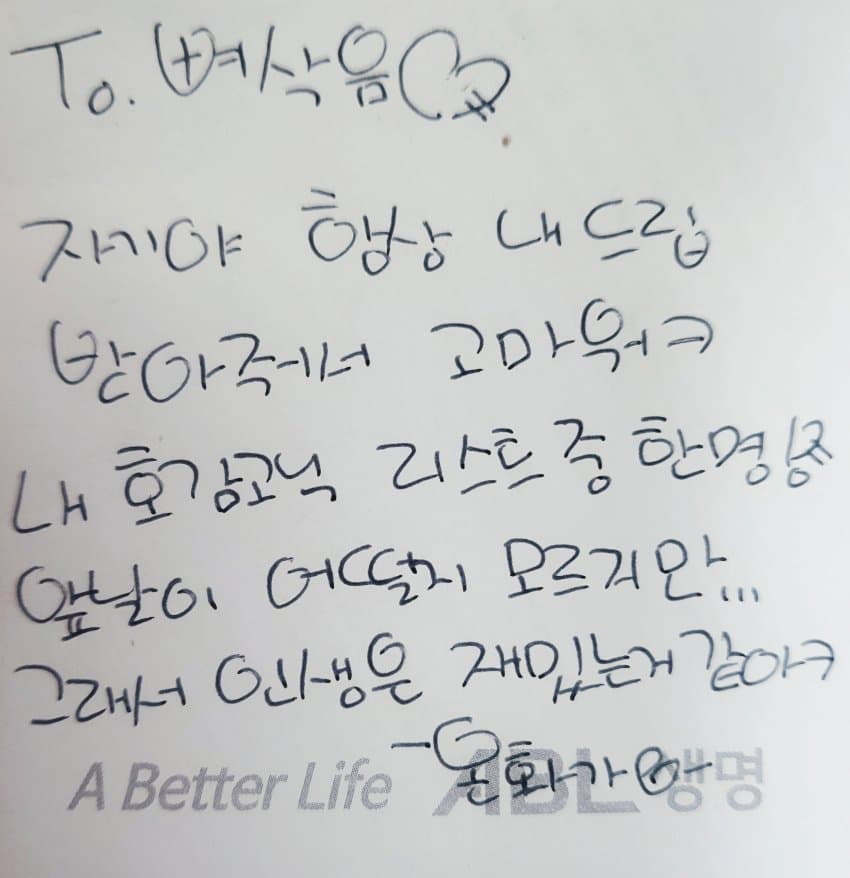 To. 벼삭음♡
자기야 항상 내 드립
받아줘서 고마워ㅋ
내 호감고닉 리스트 중 한명
앞날이 어떨지 모르지만...
그래서 인생은 재밌는거 같아ㅋ
-은화가
A Better Life ABL생명